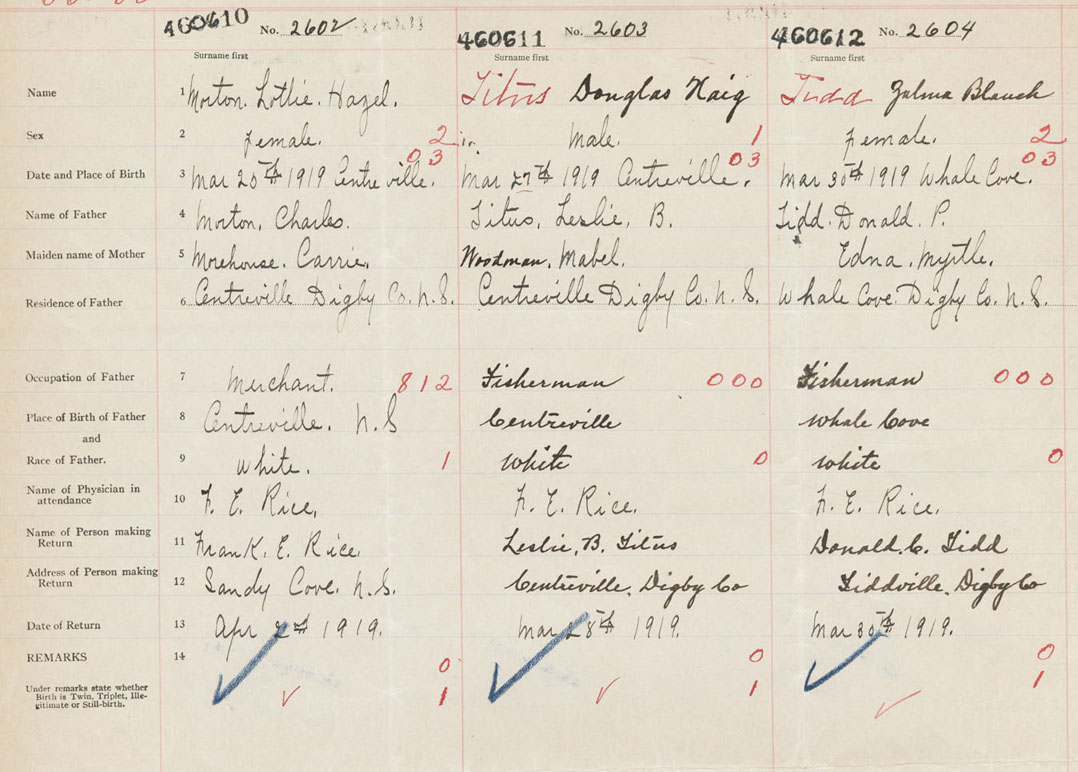 460610 No. 2602 460611 No. 2603 460612 No. 2604
Surname first Surname first Surname first
Name 1 Morton. Lottie. Hazel. Titus Douglas Haig Tidd Zelma Blanch
Sex 2 female. 2 male. 1 female. 2
03 03 03
Date and Place of Birth 3 Mar 20th 1919 Centreville. Mar 27th 1919 Centreville. Mar 30th 1919 Whale Cove.
Name of Father 4 Morton, Charles. Titus, Leslie, B. Tidd. Donald. P.
Maiden name of Mother 5 Morehouse. Carrie. Woodman, Mabel. Edna. Myrtle.
Residence of Father 6 Centreville Digby Co. N.S. Centreville Digby Co. N.S. Whale Cove. Digby Co. N.S.
Occupation of Father 7 Merchant. 812 Fisherman 000 Fisherman 000
Place of Birth of Father 8 Centreville. N.S Centreville Whale Cove
and
Race of Father. 9 White. 1 White 0 White 0
Name of Physician in
attendance 10 F. E. Rice. F. E. Rice. F. E. Rice.
Name of Person making
Return 11 Frank. E. Rice. Leslie, B. Titus Donald. C. Tidd
Address of Person making
Return 12 Sandy Cove. N.S. Centreville, Digby Co Tiddville, Digby Co
Date of Return 13 Apr 2nd 1919. Mar 28th 1919. Mar 30th 1919.
REMARKS 14 0 0 0
Under remarks state whether
Birth is Twin, Triplet, Ille-
gitimate or Still-birth. 1 1 1